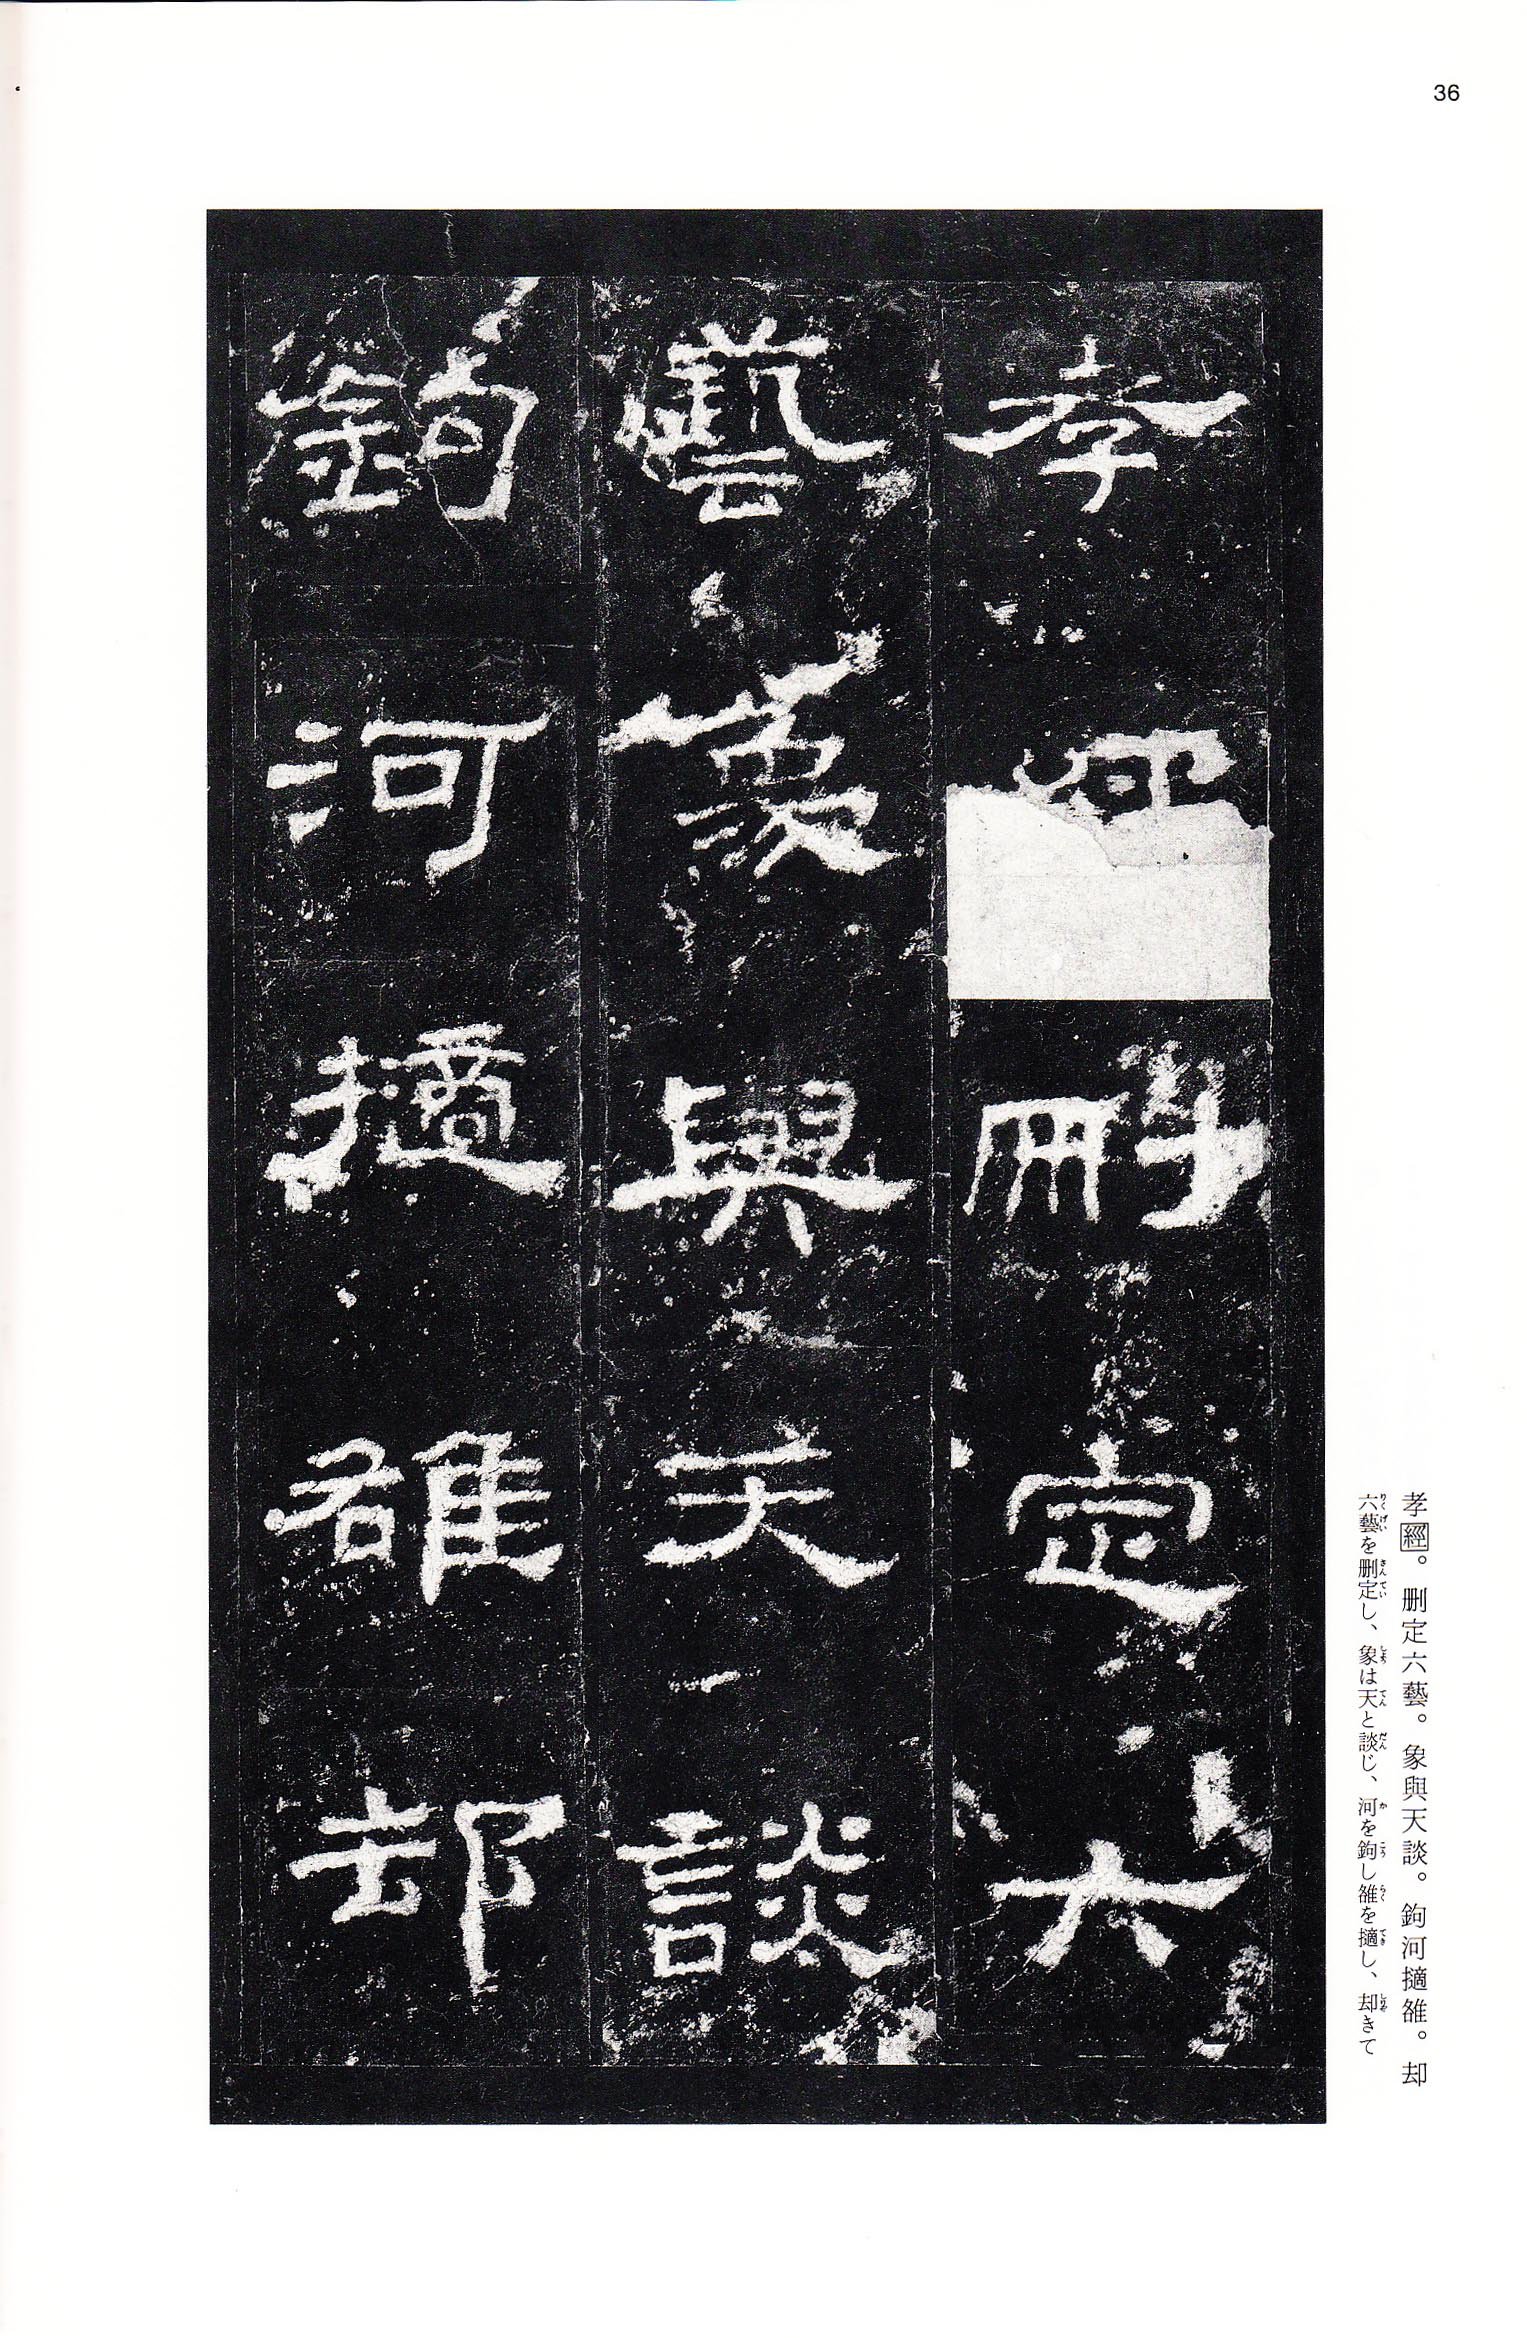 36
孝 刪定六
藝象與天談
鉤河擿雒却
孝經。删定六藝。象與天談。鉤河擿雒。却
六藝を删定し、象は天と談じ、河を鉤し雒を擿し、却きて